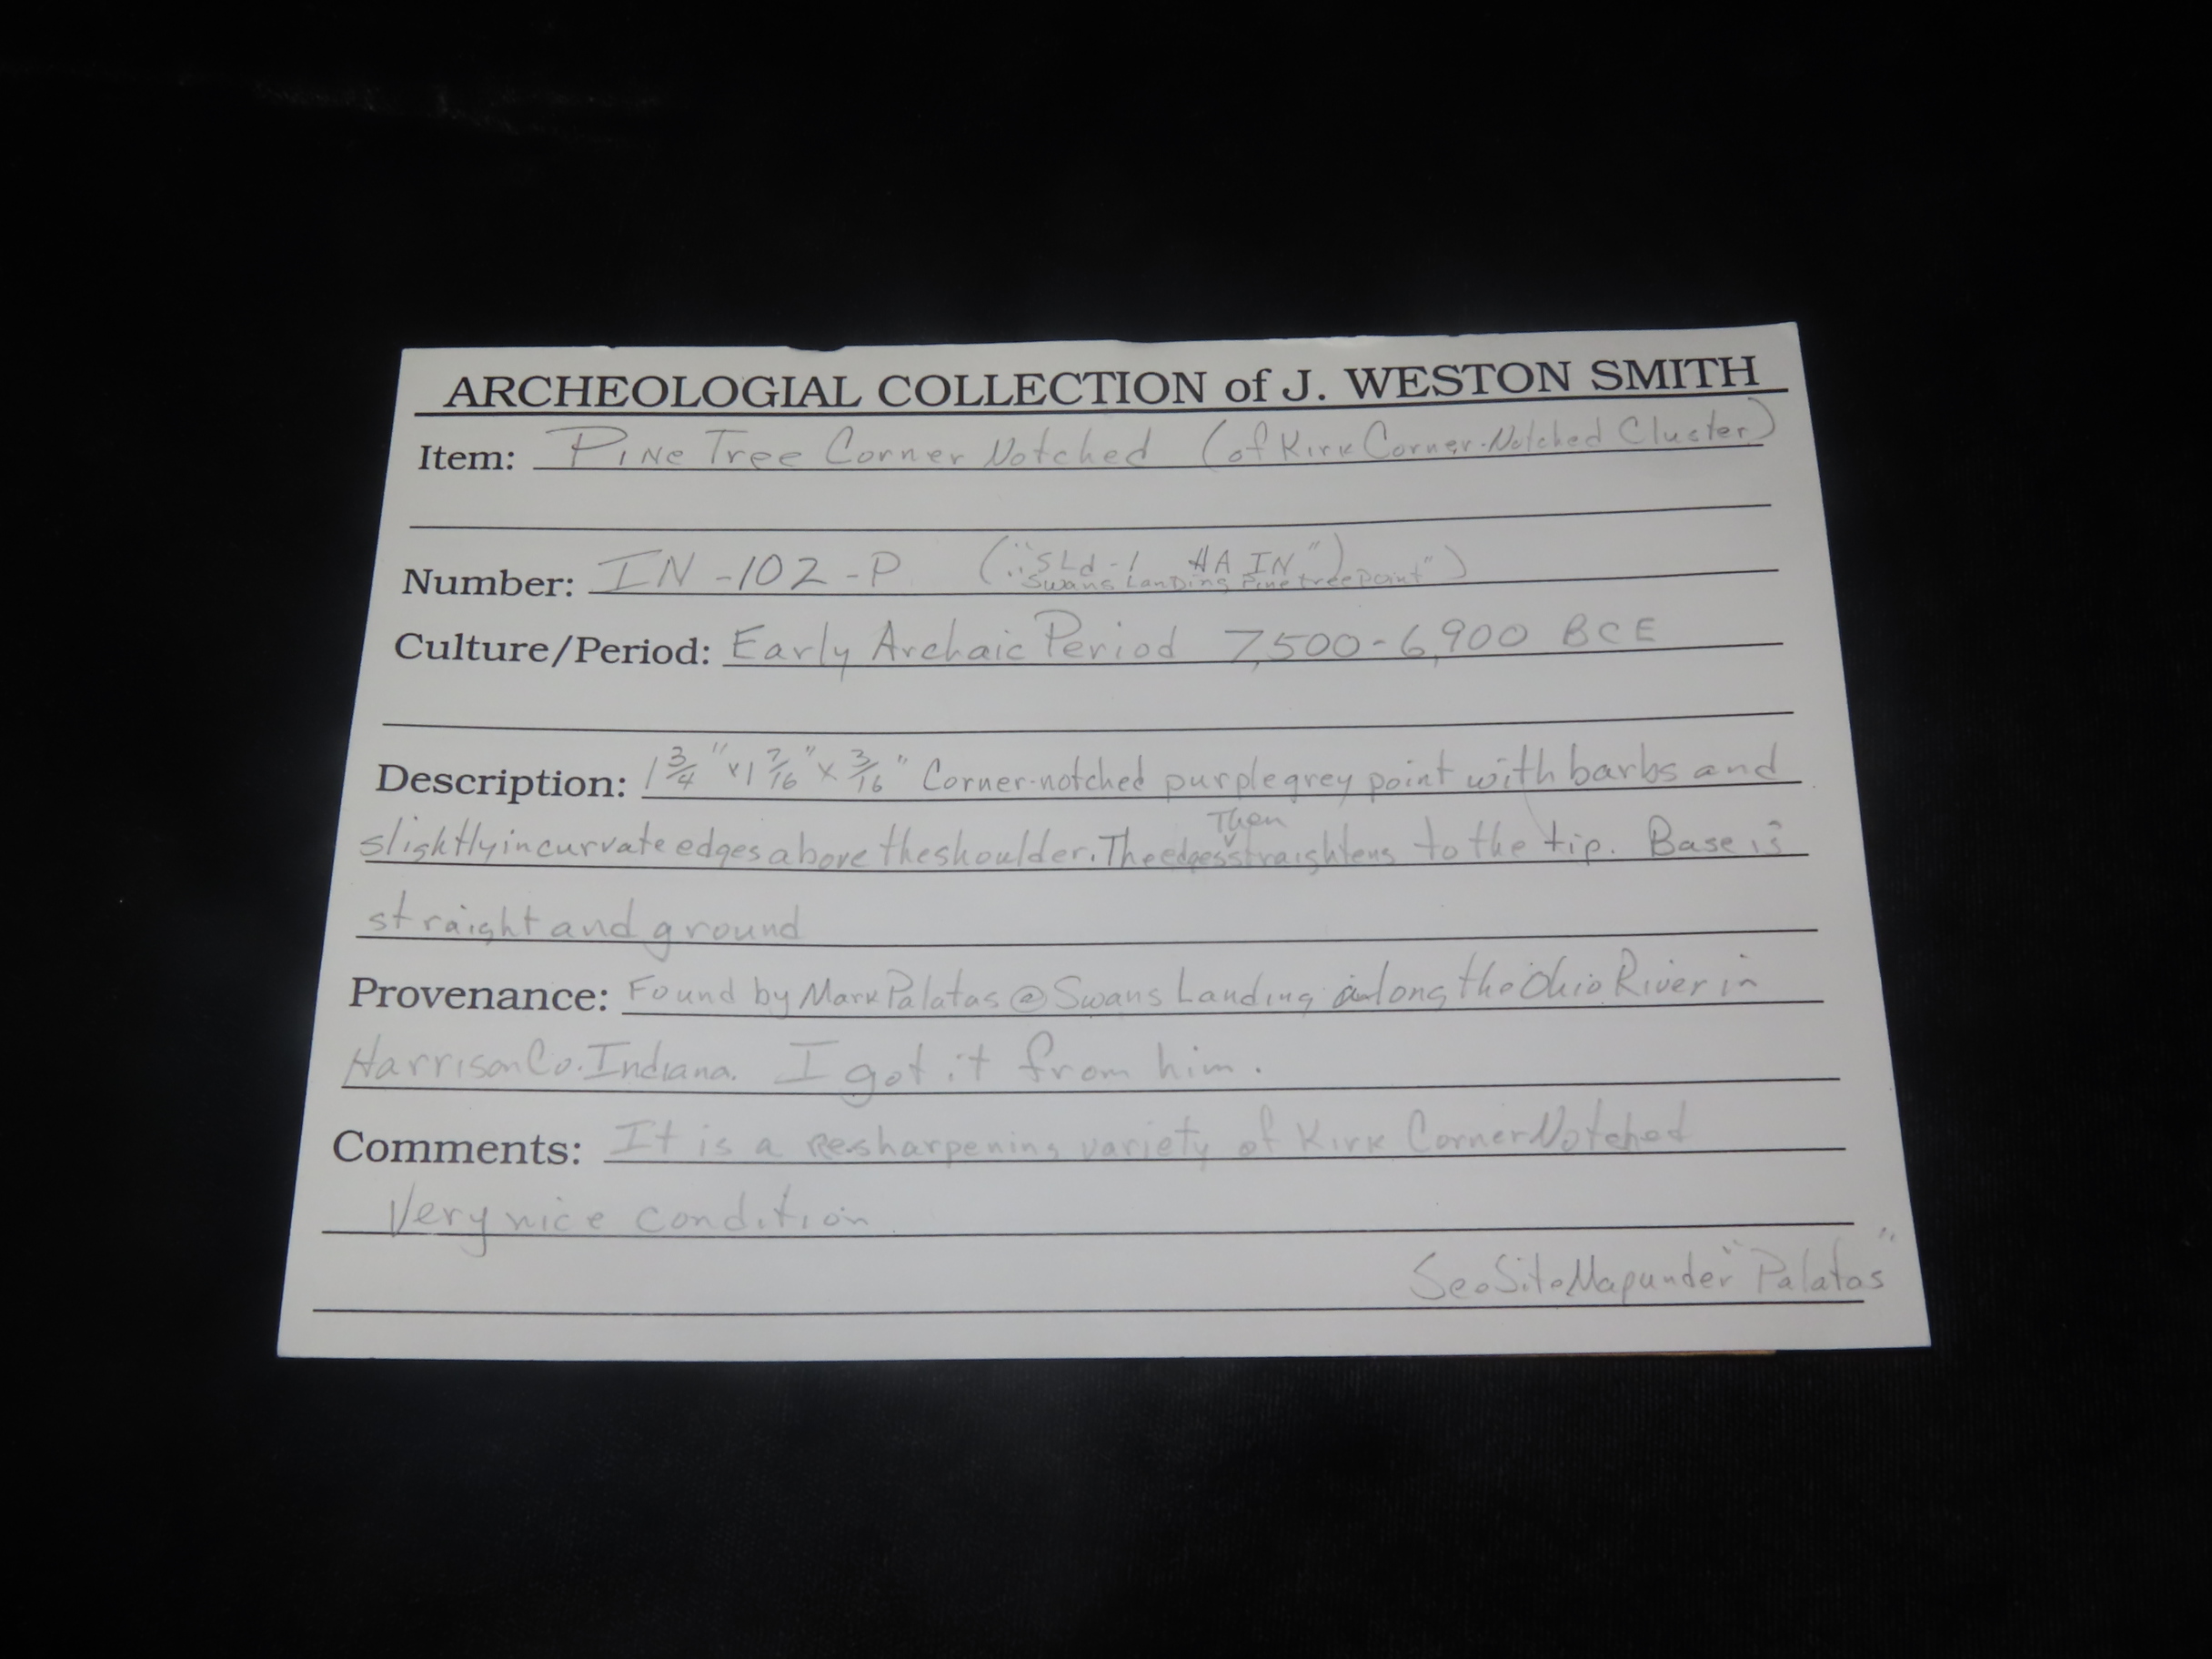 ARCHEOLOGIAL COLLECTION of J. WESTON SMITH
Item: Pine Tree Corner Notched (of Kirk Corner-Notched Cluster)
Number: IN-102-P ("SLd-1 HA IN")
Swans Landing Pinetree point")
Culture/Period: Early Archaic Period 7,500-6,900 BCE
Description: 1 3/4" x 1 7/16" x 3/16" Corner-notched purple grey point with barbs and
Then
slightly incurvate edges above the shoulder. The edges straightens to the tip. Base is
straight and ground
Provenance: Found by Mark Palatas @ Swans Landing along the Ohio River in
Harrison Co. Indiana. I got it from him.
Comments: It is a Resharpening variety of Kirk Corner Notched
Very nice condition
See Site Map under "Palatas"